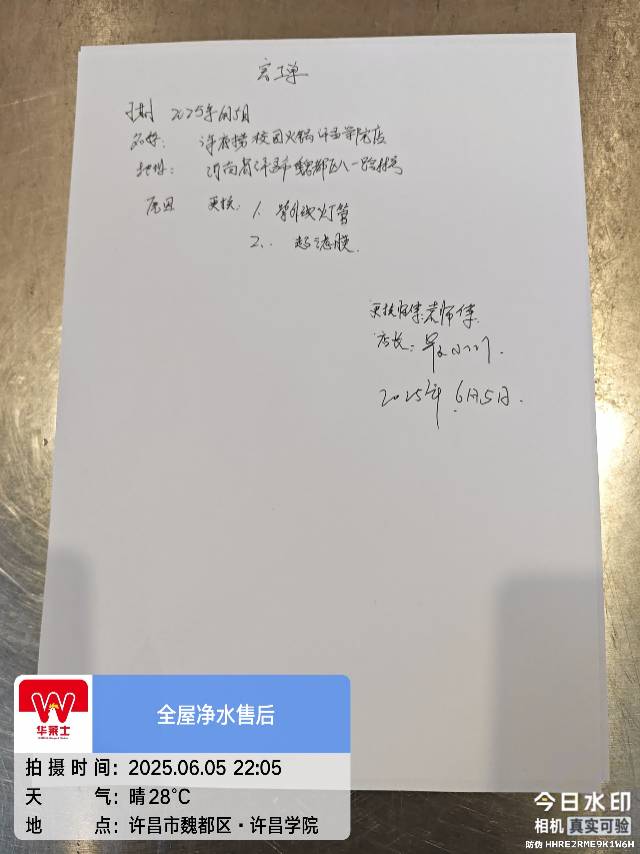 完工单
时间 2025年6月5日
名称: 许府捞校园火锅许昌学院店
地址: 河南省许昌市魏都区八一路88号
原因 更换: 1. 紫外线灯管
2. 超滤膜.
更换师傅: 
店长:
2025年 6月5日.
华莱士
全屋净水售后
拍摄时间: 2025.06.05 22:05
天 气: 晴 28°C
地 点: 许昌市魏都区·许昌学院
今日水印
相机 真实可验
防伪 HHRE2RME9K1W6H